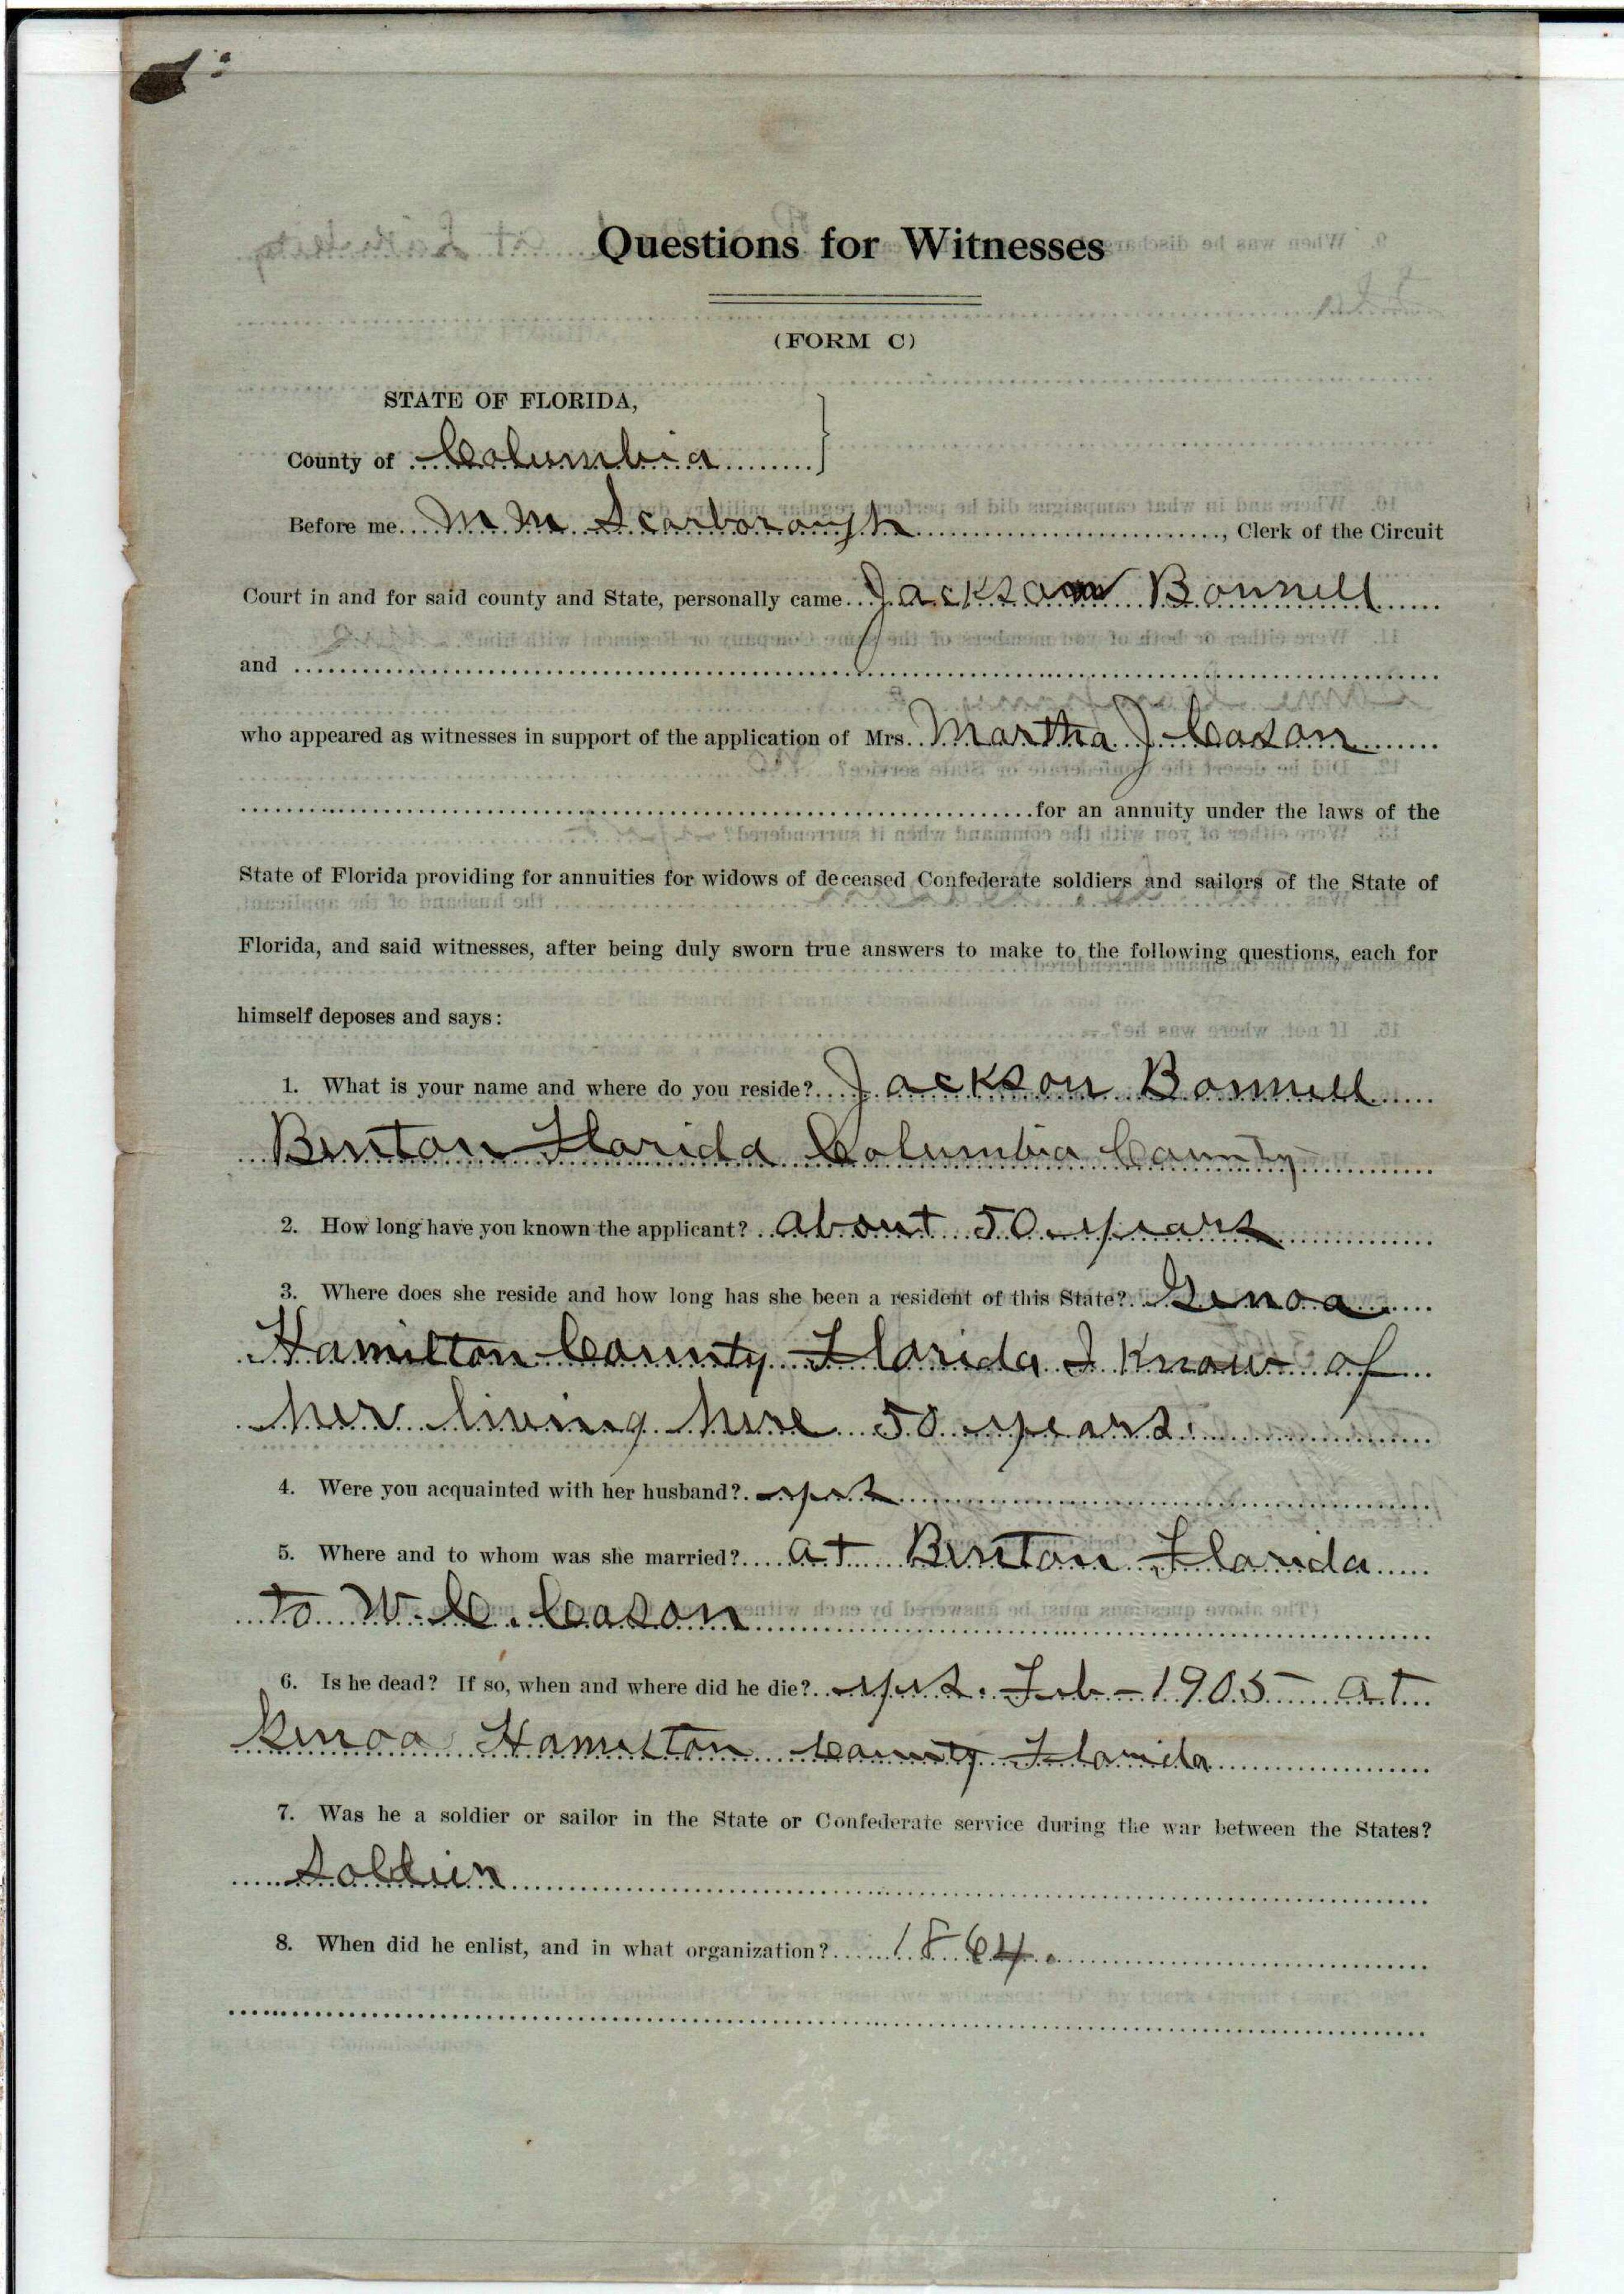 Questions for Witnesses
(FORM C)
STATE OF FLORIDA,
County of Columbia
Before me M M Scarborough, Clerk of the Circuit
Court in and for said county and State, personally came Jackson Bonnell
and
who appeared as witnesses in support of the application of Mrs. Martha J Cason
for an annuity under the laws of the
State of Florida providing for annuities for widows of deceased Confederate soldiers and sailors of the State of
Florida, and said witnesses, after being duly sworn true answers to make to the following questions, each for
himself deposes and says:
1. What is your name and where do you reside? Jackson Bonnell
Benton Florida Columbia County
2. How long have you known the applicant? about 50 years
3. Where does she reside and how long has she been a resident of this State? Genoa
Hamilton County Florida I know of
her living here 50 years.
4. Were you acquainted with her husband? yes
5. Where and to whom was she married? at Benton Florida
to W. C. Cason
6. Is he dead? If so, when and where did he die? yes. Feb - 1905 at
Genoa Hamilton County Florida
7. Was he a soldier or sailor in the State or Confederate service during the war between the States?
Soldier
8. When did he enlist, and in what organization? 1864.